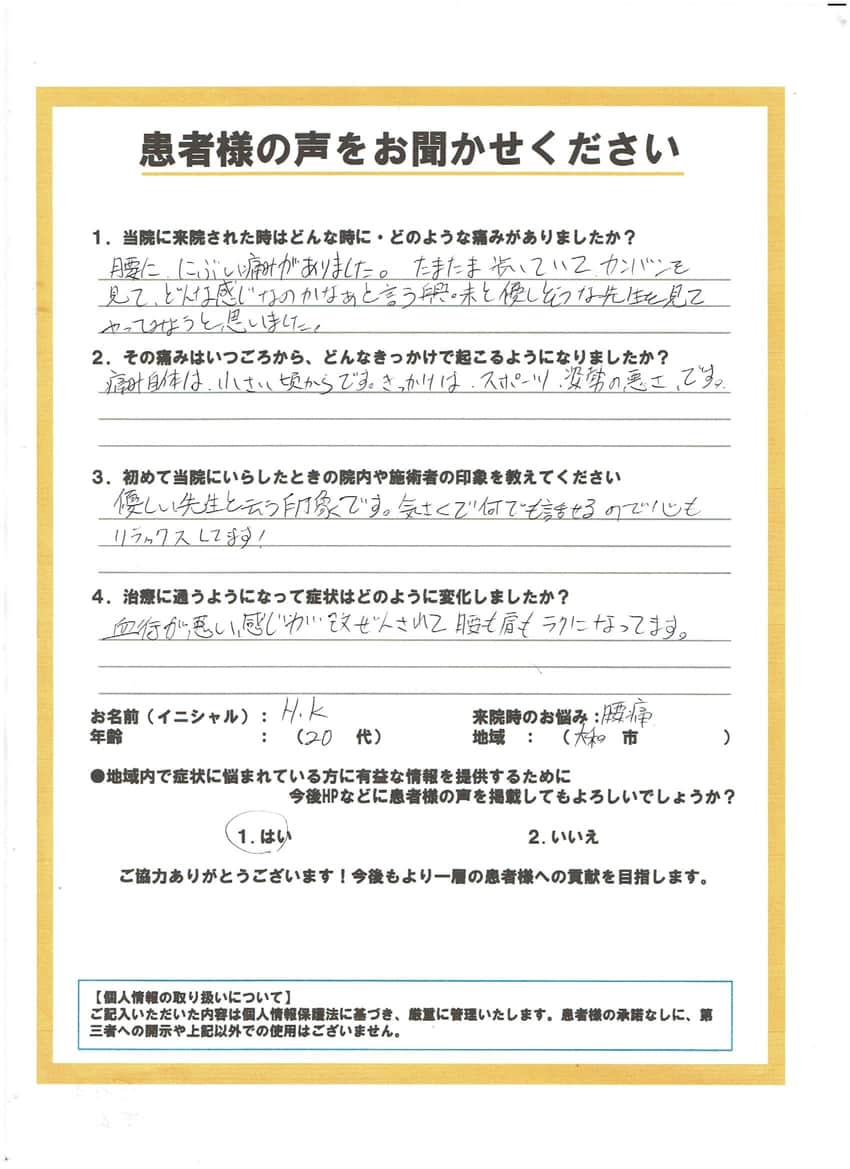 患者様の声をお聞かせください
1. 当院に来院された時はどんな時に・どのような痛みがありましたか?
腰に、にぶい痛みがありました。 たまたま歩いていて、カンバンを
見て、どんな感じなのかなぁと言う興味と優しそうな先生を見て
やってみようと思いました。
2. その痛みはいつごろから、どんなきっかけで起こるようになりましたか?
痛み自体は、小さい頃からです。きっかけは、スポーツ、姿勢の悪さ、です。
3. 初めて当院にいらしたときの院内や施術者の印象を教えてください
優しい先生と云う印象です。気さくで何でも話せるので心も
リラックスしてます!
4. 治療に通うようになって症状はどのように変化しましたか?
血行が悪い、感じが改ぜんされて腰も肩もラクになってます。
お名前(イニシャル): H.K 来院時のお悩み:腰痛
年齢 : (20 代) 地域 : (大和 市 )
●地域内で症状に悩まれている方に有益な情報を提供するために
今後HPなどに患者様の声を掲載してもよろしいでしょうか?
1.はい 2.いいえ
ご協力ありがとうございます!今後もより一層の患者様への貢献を目指します。
【個人情報の取り扱いについて】
ご記入いただいた内容は個人情報保護法に基づき、厳重に管理いたします。患者様の承諾なしに、第
三者への開示や上記以外での使用はございません。